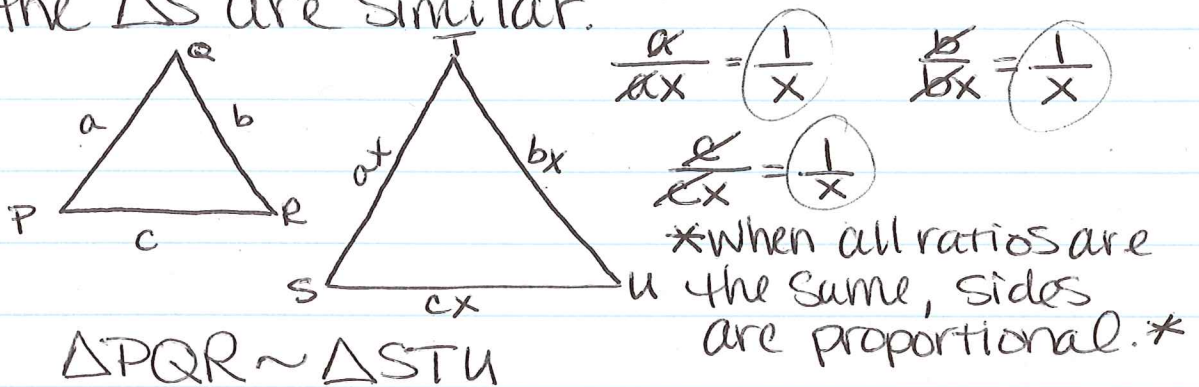 the Δs are similar.
Q
a
b
P
R
c
T
ax
bx
S
U
cx
a/ax = 1/x
b/bx = 1/x
c/cx = 1/x
*when all ratios are
the same, sides
are proportional.*
ΔPQR ~ ΔSTU